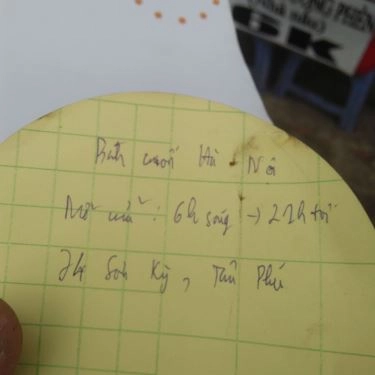 ƯỢNG PHIÊN
6K
Bánh cuốn Hà Nội
Mở cửa: 6h sáng → 22h tối
74 Sơn Kỳ, Tân Phú